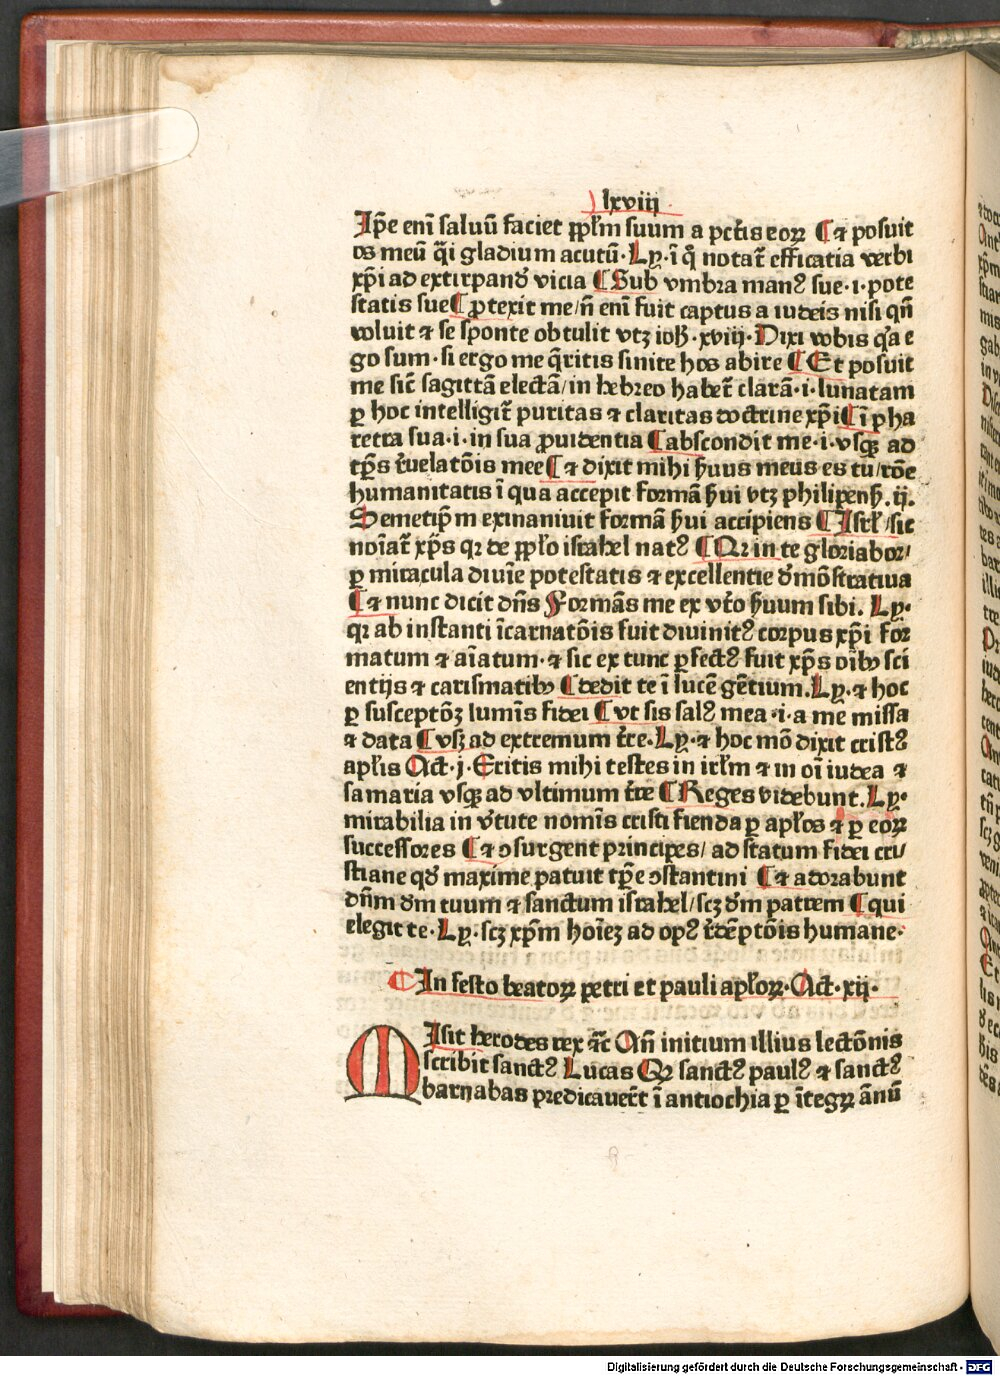 lxviij
Ip̄e enī saluū faciet pp̄lm suum a pctīs eoꝝ ¶ ⁊ posuit
os meū q̄i gladium acutū · Ly · ī qͦ notat̄ efficatia verbi
xp̄i ad extirpand̄ vicia ¶ Sub vmbra manꝰ sue · i · pote
statis sue ¶ ꝓtexit me / n̄ enī fuit captus a iudeis nisi qn̄
voluit ⁊ se sponte obtulit vtꝫ ioh̄ · xviij · Dixi vobis qͣ e
go sum · si ergo me q̄ritis sinite hos abire ¶ Et posuit
me sic̄ sagittā electā / in hebreo habet̄ clarā · i · lunatam
ꝑ hoc intelligit̄ puritas ⁊ claritas doctrine xp̄i ¶ ī pha
retra sua · i · in sua ꝓuidentia ¶ abscondit me · i · vsqꝫ ad
tp̄s r̄uelatōis mee ¶ ⁊ dixit mihi s̄uus meus es tu / rōe
humanitatis ī qua accepit formā s̄ui vtꝫ philipens̄ . ij .
Semetip̄m exinaniuit formā s̄ui accipiens ¶ Isrl̄ / sic
noīat̄ xp̄s qꝛ de pp̄lo israhel natꝰ ¶ Qꝛ in te gloriabor /
ꝑ miracula diuīe potestatis ⁊ excellentie d̄mōstratiua
¶ ⁊ nunc dicit dn̄s Formās me ex vt̄o s̄uum sibi . Ly ·
qꝛ ab instanti īcarnatōis fuit diuinitꝰ corpus xp̄i for
matum ⁊ aīatum · ⁊ sic ex tunc ꝑfectꝰ fuit xp̄s oībꝰ sci
entijs ⁊ carismatibꝰ ¶ dedit te ī lucē gētium . Ly · ⁊ hoc
ꝑ susceptōꝫ lumīs fidei ¶ vt sis salꝰ mea · i · a me missa
⁊ data ¶ vsqꝫ ad extremum t̄re . Ly · ⁊ hoc mō dixit cristꝰ
apl̄is Act · j · Eritis mihi testes in irl̄m ⁊ in oī iudea ⁊
samaria vsqꝫ ad vltimum t̄re ¶ Reges videbunt . Ly ·
mirabilia in v̄tute nomīs cristi fienda ꝑ apl̄os ⁊ ꝑ eoꝝ
successores ¶ ⁊ ↄsurgent principes / ad statum fidei cri /
stiane qd̄ maxime patuit tp̄e ↄstantini ¶ ⁊ adorabunt
dn̄m dm̄ tuum ⁊ sanctum israhel / scꝫ dm̄ patrem ¶ qui
elegit te · Ly · scꝫ xp̄m hoīeꝫ ad opꝰ r̄dēptōis humane ·
¶ In festo beatoꝝ petri et pauli apl̄oꝝ · Act · xij ·
MIsit herodes rex ⁊c̄ An̄ initium illius lectōnis
scribit sanctꝰ Lucas Qꝛ sanctꝰ paulꝰ ⁊ sanctꝰ
barnabas predicauer̄t ī antiochia ꝑ ītegꝝ ānū
Digitalisierung gefördert durch die Deutsche Forschungsgemeinschaft · DFG